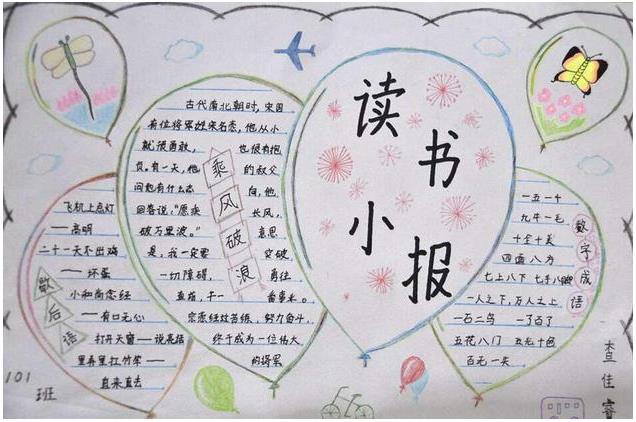 读书
小报
乘风破浪
古代南北朝时,宋国
有位将军姓宋名悫,他从小
就很勇敢,也很有抱
负。有一天,他的叔父
问他有什么志向,他
回答说:“愿乘长风,
破万里浪。”意思
是,我一定要突破
一切障碍,勇往
直前,干一番事业。
宗悫经过苦练,努力奋斗,
终于成为一位伟大
的将军
歇后语
飞机上点灯
——高明
二十一天不出鸡
——坏蛋
小和尚念经
——有口无心
打开天窗——说亮话
里弄里扛竹竿——
直来直去
数字成语
一五一十
九牛一毛
十全十美
四面八方
七上八下
一人之下,万人之上
一石二鸟 一了百了
五花八门 五光十色
百无一失
101
班
查佳睿